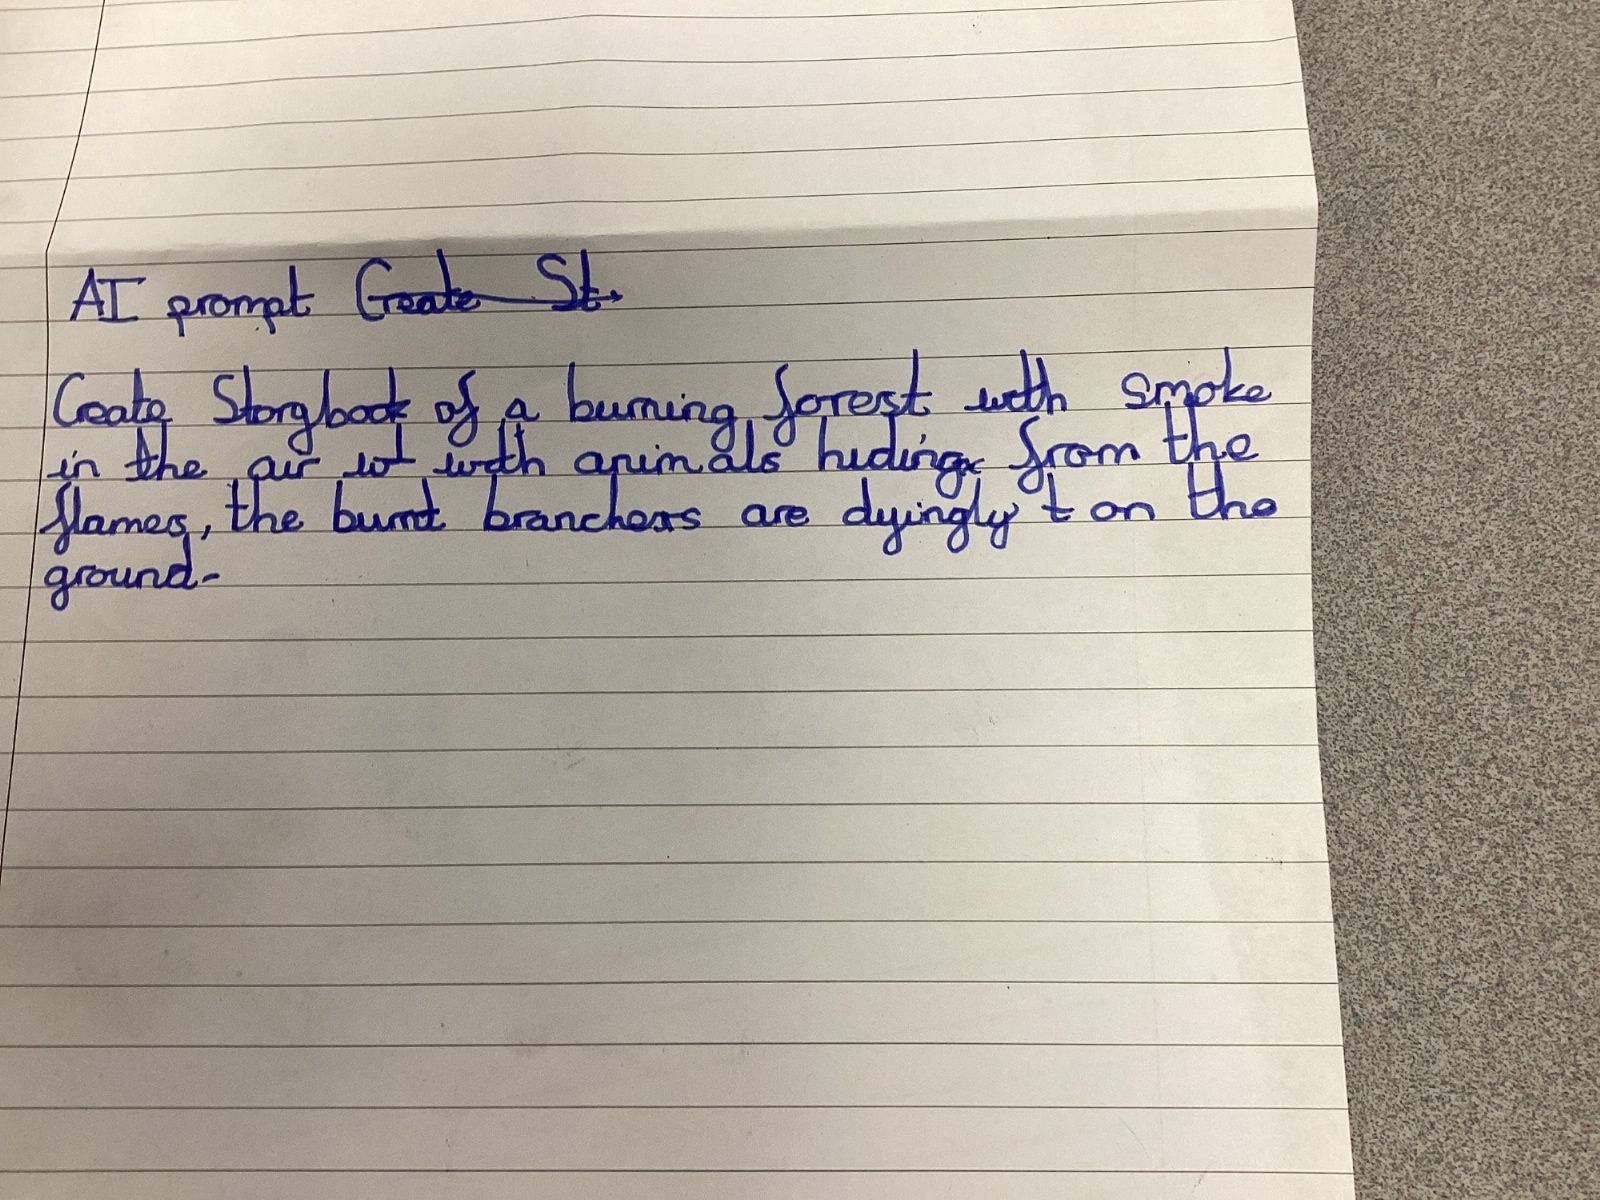 AI prompt Create St.
Create Storybook of a burning forest with smoke
in the air wt with animals hiding from the
flames, the burnt branches are dyingly t on the
ground-